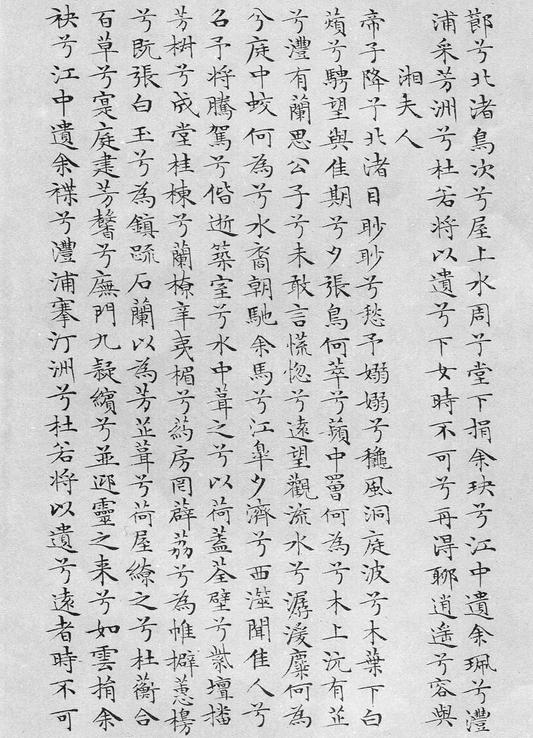 鄣兮北渚鳥次兮屋上水周兮堂下捐余玦兮江中遺余珮兮灃
浦采芳洲兮杜若將以遺兮下女時不可兮再得聊逍遙兮容與
湘夫人
帝子降兮北渚目眇眇兮愁予嫋嫋兮穐風洞庭波兮木葉下白
薠兮騁望與佳期兮夕張鳥何萃兮蘋中罾何為兮木上沅有芷
兮灃有蘭思公子兮未敢言慌惚兮遠望觀流水兮潺湲麋何為
兮庭中蛟何為兮水裔朝馳余馬兮江皋夕濟兮西澨聞佳人兮
召予將騰駕兮偕逝築室兮水中葺之兮以荷蓋荃壁兮紫壇播
芳椒兮成堂桂棟兮蘭橑辛夷楣兮葯房罔薜荔兮為帷擗蕙櫋
兮既張白玉兮為鎮疏石蘭以為芳芷葺兮荷屋繚之兮杜蘅合
百草兮寔庭建芳馨兮廡門九嶷繽兮並迎靈之来兮如雲捐余
袂兮江中遺余褋兮灃浦搴汀洲兮杜若將以遺兮遠者時不可